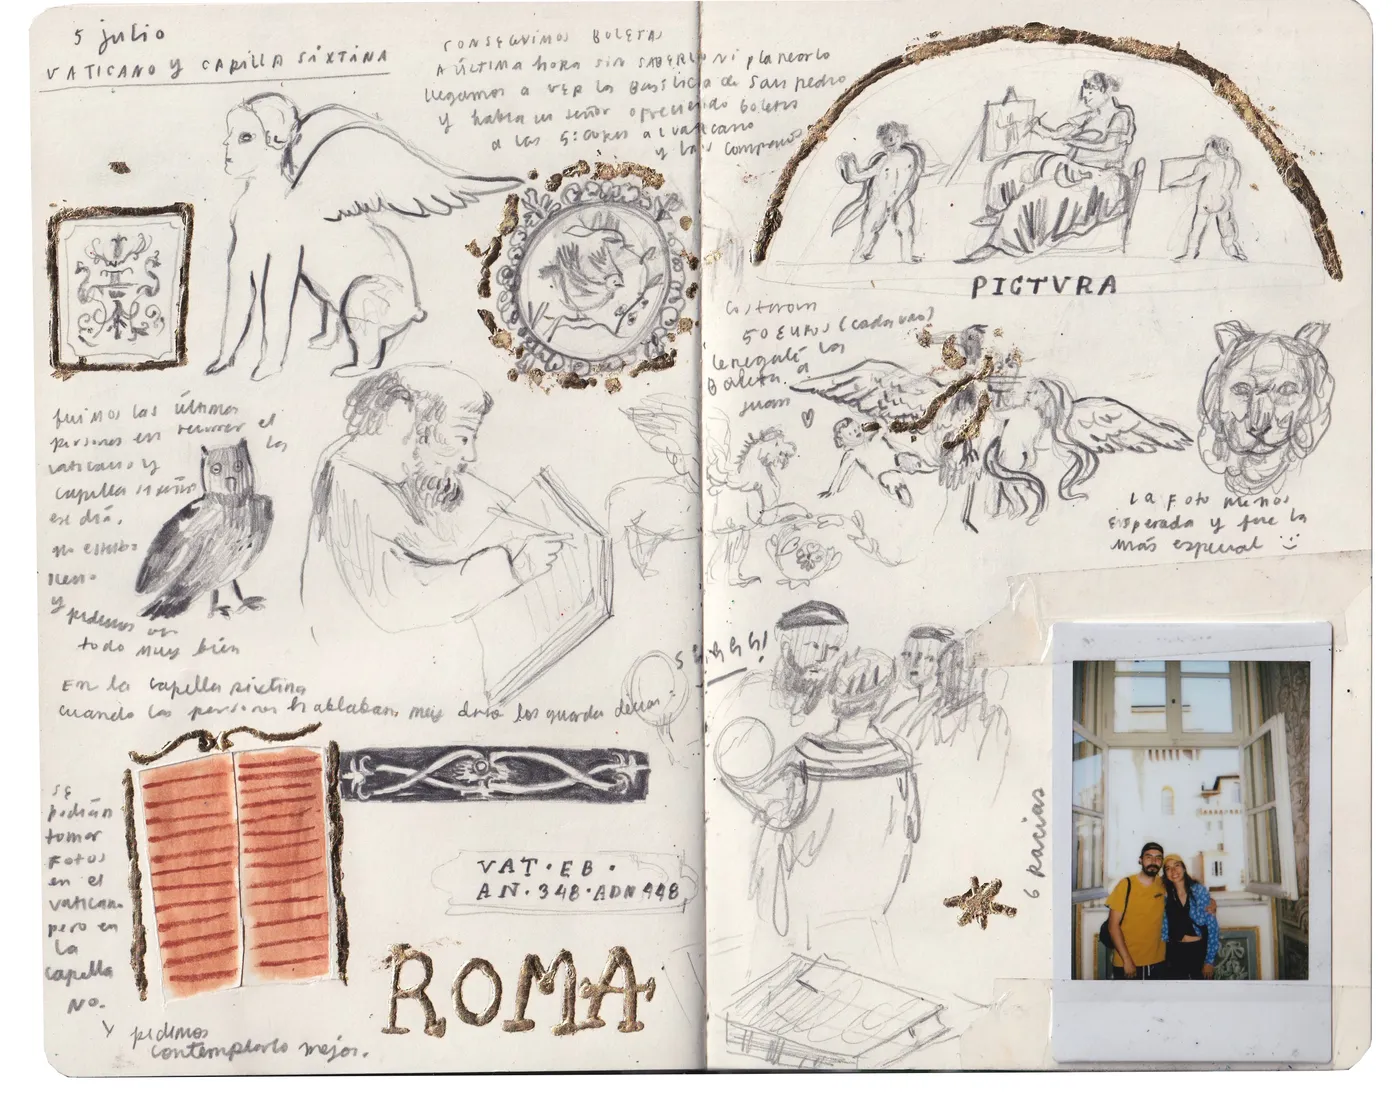 5 julio
VATICANO y CAPILLA SIXTINA
CONSEGUIMOS BOLETAS
A ÚLTIMA hora SIN SABERLO NI planearlo
llegamos a VER la Basílica de San pedro
y había un señor ofreciendo boletas
a las 5:00pm al vaticano
y las compramos
fuimos las últimas
personas en recorrer el
vaticano y la
capilla sixtina
ese día,
no estaba
lleno
y
pudimos ver
todo muy bien
En la capilla sixtina
cuando las personas hablaban muy duro los guardas decían
SHHHH!
SE
podían
tomar
FOTOS
en el
vaticano
pero en
la
capilla
NO.
y pudimos
contemplarlo mejor.
VAT·EB·
AN·348·ADN 448
ROMA
PICTVRA
Costaron
50 EUROS (cada uno)
le regalé las
Boletas a
juan
♡
LA FOTO menos
esperada y fue la
más especial :)
Gracias